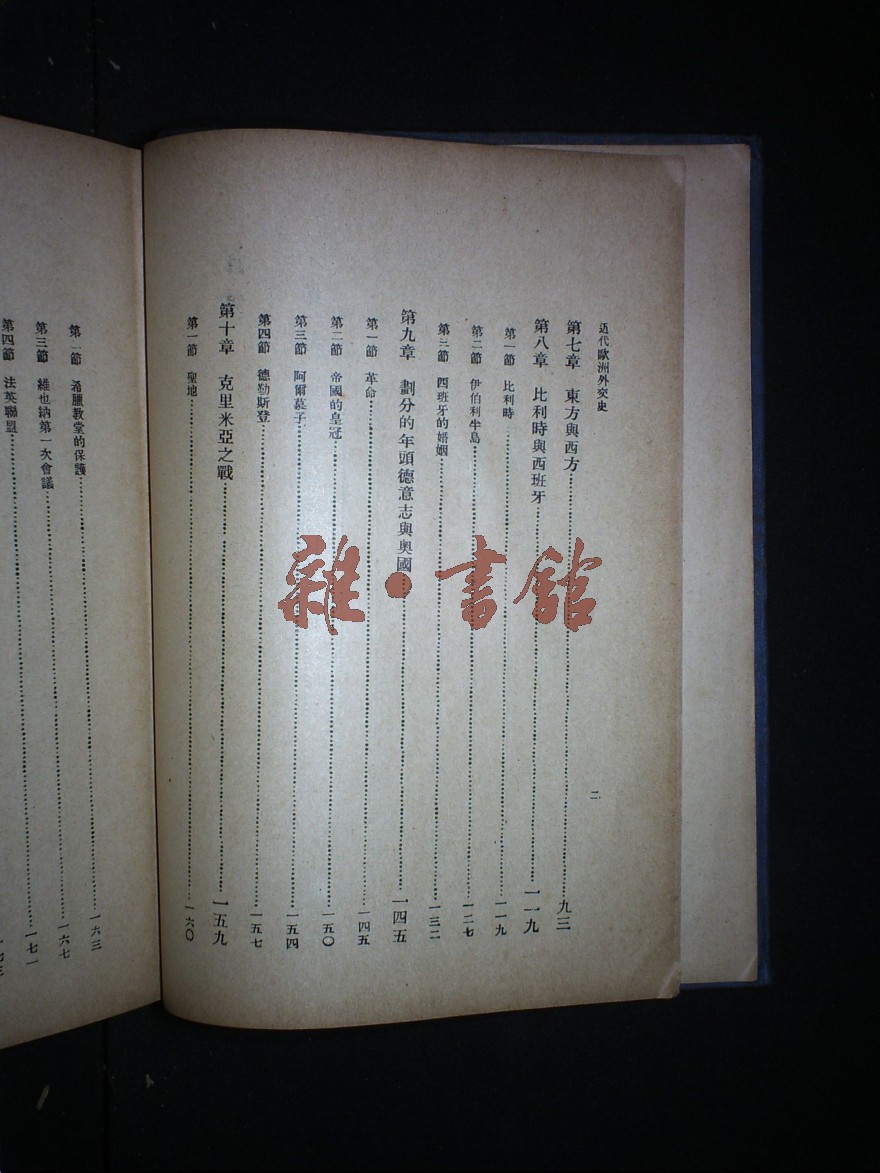 近代歐洲外交史
第七章 東方與西方……九三
第八章 比利時與西班牙……一一九
第一節 比利時……一一九
第二節 伊伯利半島……一二七
第三節 西班牙的婚姻……一三二
第九章 劃分的年頭德意志與奧國……一四五
第一節 革命……一四五
第二節 帝國的皇冠……一五〇
第三節 阿爾慕子……一五四
第四節 德勒斯登……一五七
第十章 克里米亞之戰……一五九
第一節 聖地……一六〇
二
第二節 希臘教堂的保護……一六三
第三節 維也納第一次會議……一六七
第四節 法英聯盟……一七一
雜·書館